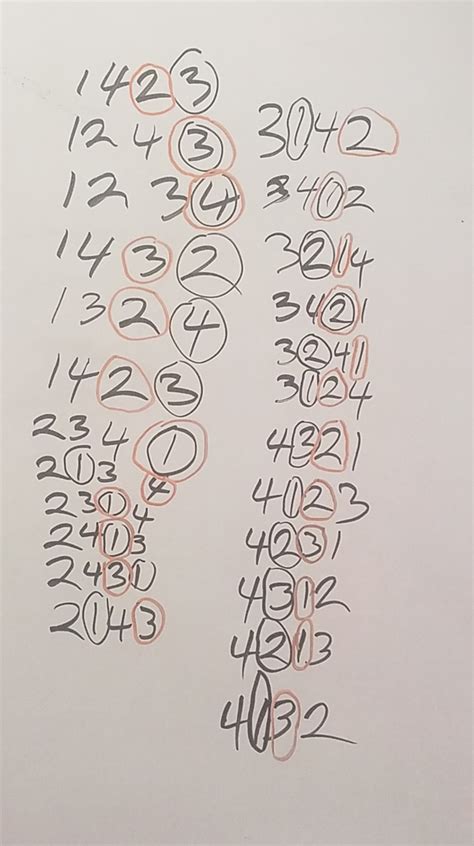 1423
1243
1234
1432
1324
1423
2341
2134
2314
2413
2431
2143
3142
3402
3214
3421
3241
3124
4321
4123
4231
4312
4213
4132